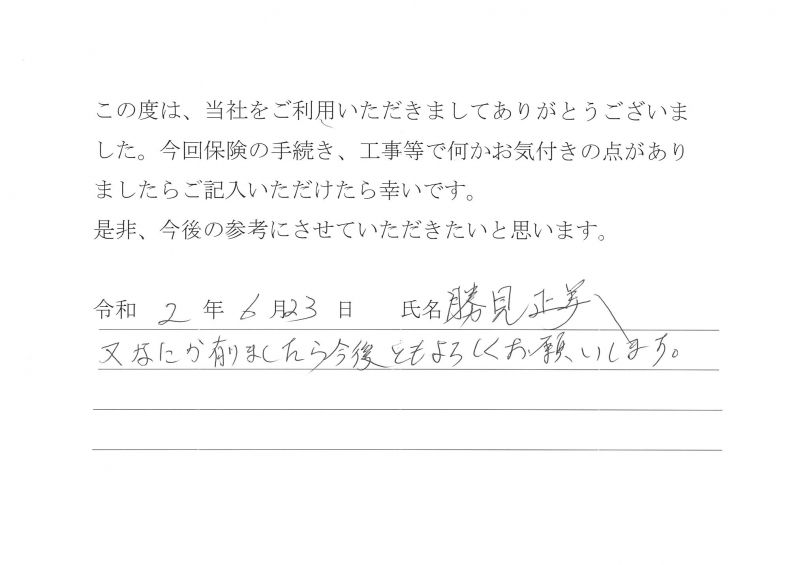 この度は、当社をご利用いただきましてありがとうございま
した。今回保険の手続き、工事等で何かお気付きの点があり
ましたらご記入いただけたら幸いです。
是非、今後の参考にさせていただきたいと思います。
令和 2 年 6 月23 日 氏名 勝見正美
又なにか有りましたら今後ともよろしくお願いします。